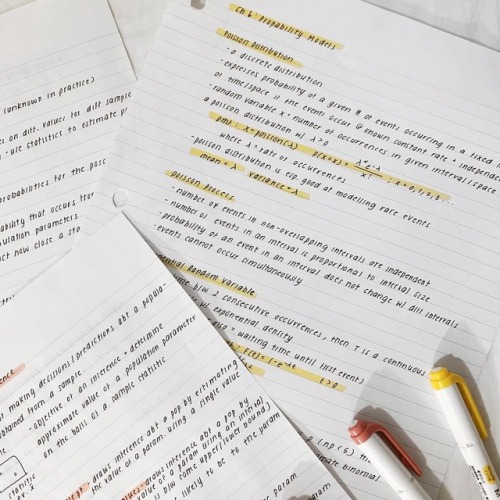 Ch 6: Probability Models
Poisson Distribution
- a discrete distribution
- expresses probability of a given # of events occurring in a fixed
of time/space if the events occur @ known constant rate + independen
- random variable X = number of occurrences in given interval/space
a poisson distribution w/ λ > 0
pmf: X ~ Poisson(λ) P(X=x) = λ^x e^-λ / x! ; x = 0, 1, 2, 3...
where λ = rate of occurrences
- poisson distribution is esp. good at modelling rare events
mean = λ variance = λ
Poisson Process
- number of events in non-overlapping intervals are independent
- number of events in an interval is proportional to interval size
- probability of an event in an interval does not change w/ diff intervals
- events cannot occur simultaneously
nential Random Variable
me b/w 2 consecutive occurrences, then T is a continuous
w/ exponential density
also = waiting time until first event
F(t) = 1-e^-λt t > 0
p (np ≤ 5) th
mate binomial
(unknown in practice)
on diff. values for diff sample
- use statistics to estimate p
probabilities for the poss
ability that occurs from
ulation parameters
ct now close a sta
ence
t making decisions/predictions abt a popula-
btained from a sample
- objective of an inference = determine
approximate value of a population parameter
on the basis of a sample statistic
draws inference abt a pop by estimating
the value of a param. using a single value
draws inference abt a pop by
of a param using an interval
w/ some upper/lower bound)
likely to be to the param
param